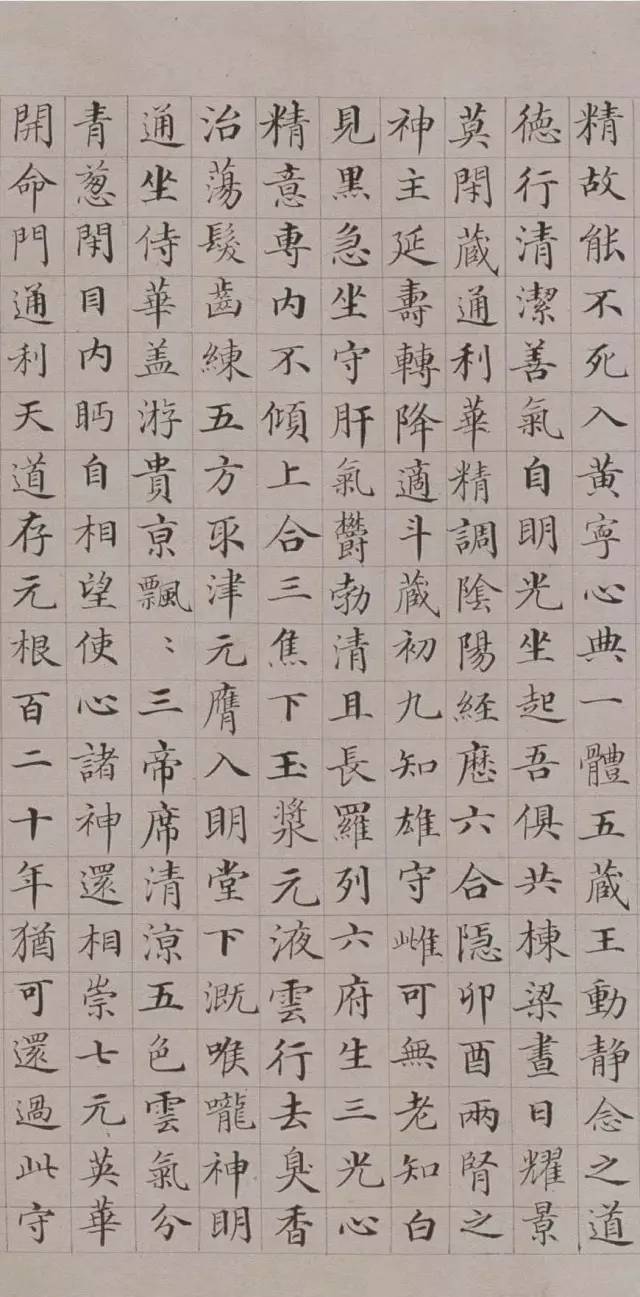 精故能不死入黃寧心典一體五蔵王動静念之道
徳行清潔善氣自明光坐起吾俱共棟梁晝日耀景
莫閇蔵通利華精調陰陽経歷六合隱卯酉兩腎之
神主延壽轉降適斗蔵初九知雄守雌可無老知白
見黑急坐守肝氣欝勃清且長羅列六府生三光心
精意専內不傾上合三焦下玉漿元液雲行去臭香
治蕩髮齒練五方取津元膺入明堂下溉喉嚨神明
通坐侍華盖游貴京飄〻三帝席清涼五色雲氣分
青葱閇目內眄自相望使心諸神還相崇七元英華
開命門通利天道存元根百二十年猶可還過此守